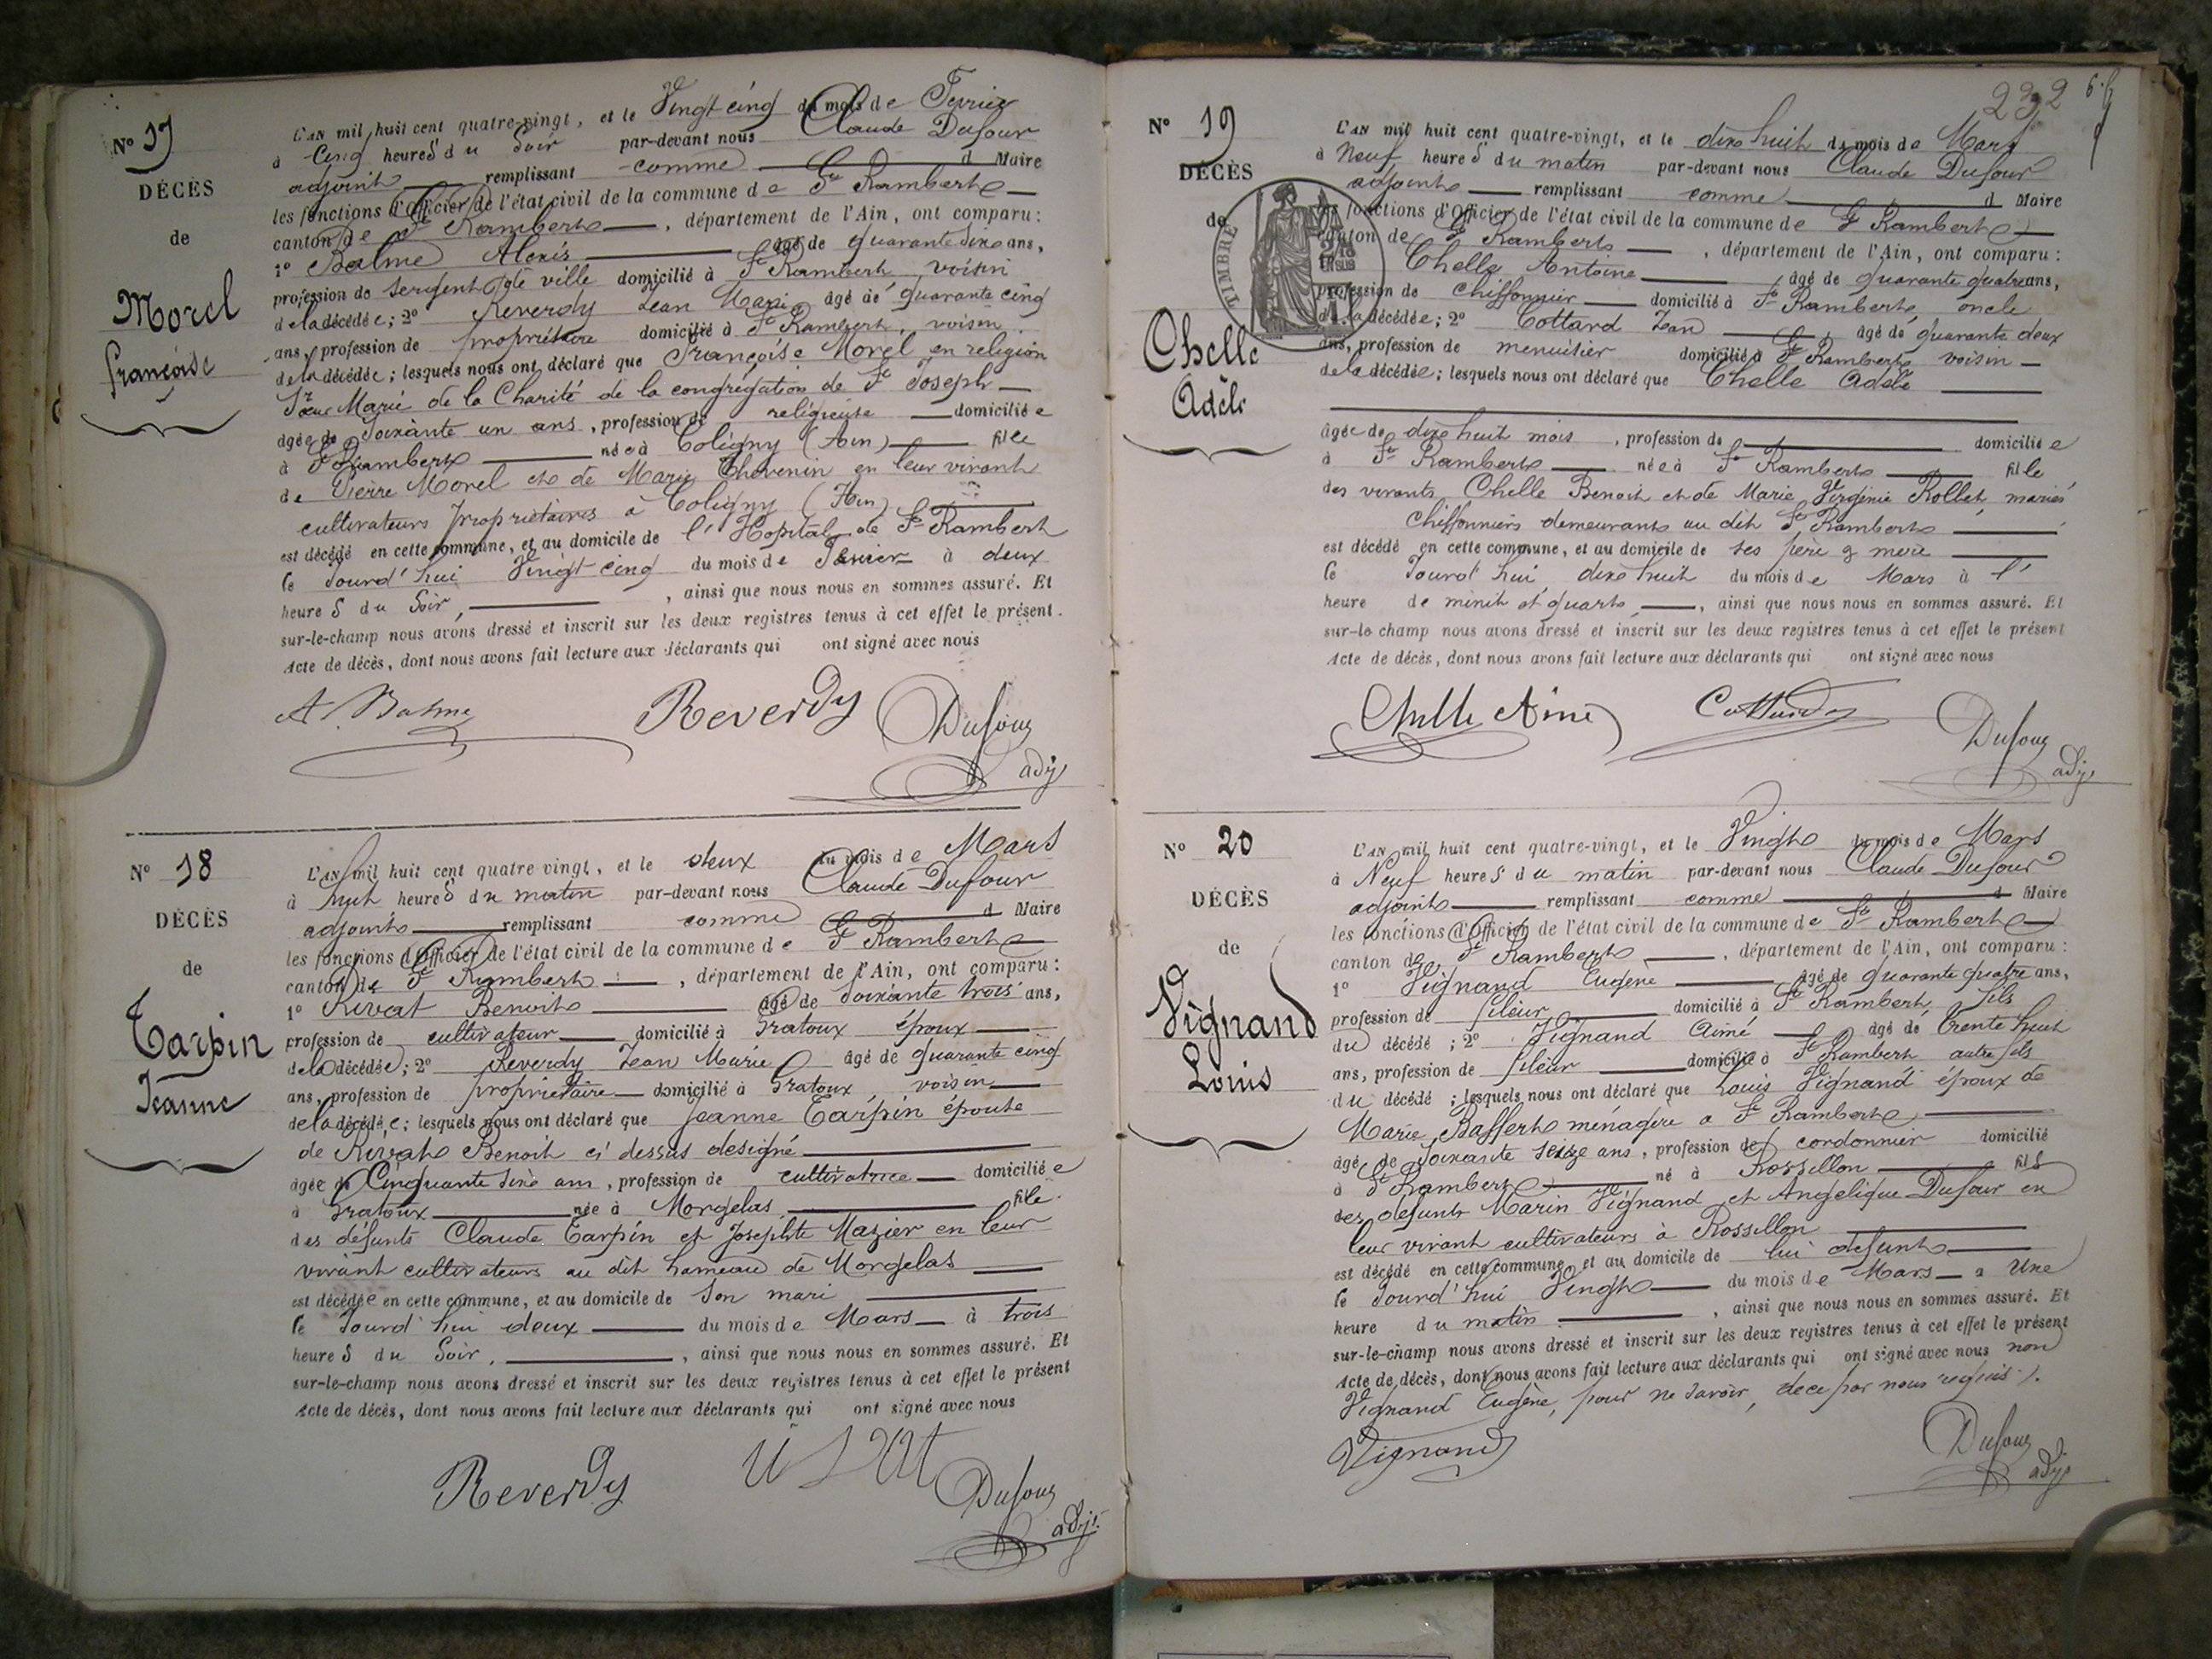 N° 17
DÉCÈS
de
Morel
françoise
L'AN mil huit cent quatre-vingt, et le Vingt cinq du mois de Fevrier
à Cinq heures du Soir par-devant nous Claude Dufour
adjoint remplissant comme d Maire
les fonctions d'Officier de l'état civil de la commune de St Rambert
canton de St Rambert, département de l'Ain, ont comparu:
1° Balme Alexis âgé de quarante six ans,
profession de sergent de ville domicilié à St Rambert voisin
de la décédée; 2° Reverdy Jean Marie âgé de quarante cinq
ans, profession de propriétaire domicilié à St Rambert, voisin
de la décédée; lesquels nous ont déclaré que Françoise Morel en religion
Sœur Marie de la Charité de la congrégation de St Joseph
âgée de Soixante un ans, profession de religieuse domiciliée
à St Rambert née à Coligny (Ain) fille
de Pierre Morel et de Marie Thevenin en leur vivant
cultivateurs propriétaires à Coligny (Ain)
est décédé en cette commune, et au domicile de l'Hopital de St Rambert
le Jourd'hui Vingt cinq du mois de Fevrier à deux
heures du Soir, , ainsi que nous nous en sommes assuré. Et
sur-le-champ nous avons dressé et inscrit sur les deux registres tenus à cet effet le présent
Acte de décès, dont nous avons fait lecture aux déclarants qui ont signé avec nous
A. Balme Reverdy Dufour
adj
N° 18
DÉCÈS
de
Tarpin
Jeanne
L'AN mil huit cent quatre-vingt, et le deux du mois de Mars
à huit heures du matin par-devant nous Claude Dufour
adjoint remplissant comme d Maire
les fonctions d'Officier de l'état civil de la commune de St Rambert
canton de St Rambert, département de l'Ain, ont comparu:
1° Rivat Benoit âgé de Soixante trois ans,
profession de cultivateur domicilié à Gratoux époux
de la décédée; 2° Reverdy Jean Marie âgé de quarante cinq
ans, profession de propriétaire domicilié à Gratoux, voisin
de la décédée; lesquels nous ont déclaré que Jeanne Tarpin épouse
de Rivat Benoit ci dessus designé
âgée de Cinquante six ans, profession de cultivatrice domiciliée
à Gratoux née à Morgelas fille
des défunts Claude Tarpin et Josephte Mazier en leur
vivant cultivateurs au dit hameau de Morgelas
est décédée en cette commune, et au domicile de Son mari
le Jourd'hui deux du mois de Mars à trois
heures du Soir, , ainsi que nous nous en sommes assuré. Et
sur-le-champ nous avons dressé et inscrit sur les deux registres tenus à cet effet le présent
Acte de décès, dont nous avons fait lecture aux déclarants qui ont signé avec nous
Reverdy Dufour
adj.
232
N° 19
DÉCÈS
de
Chelle
Adèle
TIMBRE
L'AN mil huit cent quatre-vingt, et le dix huit du mois de Mars
à Neuf heures du matin par-devant nous Claude Dufour
adjoint remplissant comme d Maire
les fonctions d'Officier de l'état civil de la commune de St Rambert
canton de St Rambert, département de l'Ain, ont comparu:
Chelle Antoine âgé de quarante quatre ans,
profession de chiffonnier domicilié à St Rambert, oncle
de la décédée; 2° Cottard Jean âgé de quarante deux
ans, profession de menuisier domicilié à St Rambert, voisin
de la décédée; lesquels nous ont déclaré que Chelle Adèle
âgée de dix huit mois, profession de domiciliée
à St Rambert née à St Rambert fille
des vivants Chelle Benoit et de Marie Virginie Rollet, mariés
chiffonniers demeurants au dit St Rambert
est décédé en cette commune, et au domicile de ses père & mère
le Jourd'hui dix huit du mois de Mars à l'
heure de minuit et quart, , ainsi que nous nous en sommes assuré. Et
sur-le-champ nous avons dressé et inscrit sur les deux registres tenus à cet effet le présent
Acte de décès, dont nous avons fait lecture aux déclarants qui ont signé avec nous
Chelle Ainé Cottard Dufour
adj
N° 20
DÉCÈS
de
Vignand
Louis
L'AN mil huit cent quatre-vingt, et le Vingt du mois de Mars
à Neuf heures du matin par-devant nous Claude Dufour
adjoint remplissant comme d Maire
les fonctions d'Officier de l'état civil de la commune de St Rambert
canton de St Rambert, département de l'Ain, ont comparu:
1° Vignand Eugène âgé de quarante quatre ans,
profession de fileur domicilié à St Rambert, fils
du décédé; 2° Vignand Aimé âgé de trente huit
ans, profession de fileur domicilié à St Rambert autre fils
du décédé; lesquels nous ont déclaré que Louis Vignand époux de
Marie Baffert ménagère à St Rambert
âgé de Soixante seize ans, profession de cordonnier domicilié
à St Rambert né à Rossillon fils
des défunts Marin Vignand et Angelique Dufour en
leur vivant cultivateurs à Rossillon
est décédé en cette commune, et au domicile de lui défunt
le Jourd'hui Vingt du mois de Mars à Une
heure du matin , ainsi que nous nous en sommes assuré. Et
sur-le-champ nous avons dressé et inscrit sur les deux registres tenus à cet effet le présent
Acte de décès, dont nous avons fait lecture aux déclarants qui ont signé avec nous non
Vignand Eugène, pour ne savoir, de ce par nous requis
Vignand Dufour
adj